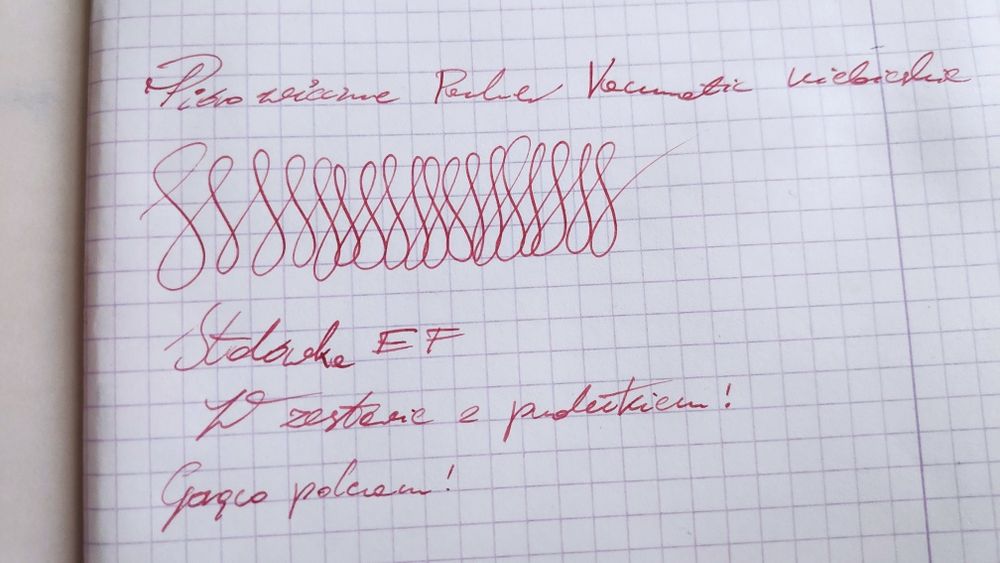 Pióro wieczne Parker Vacumatic niebieskie
Stalówka EF
W zestawie z pudełkiem!
Gorąco polecam!